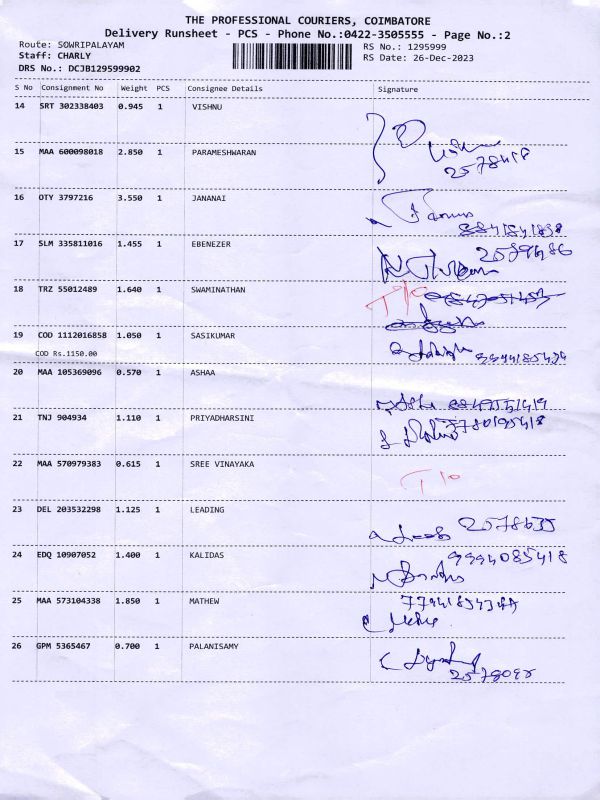 THE PROFESSIONAL COURIERS, COIMBATORE
Delivery Runsheet - PCS - Phone No.:0422-3505555 - Page No.:2
Route: SOWRIPALAYAM RS No.: 1295999
Staff: CHARLY RS Date: 26-Dec-2023
DRS No.: DCJB129599902
S No Consignment No Weight PCS Consignee Details Signature
14 SRT 302338403 0.945 1 VISHNU
15 MAA 600098018 2.850 1 PARAMESHWARAN
2578418
16 OTY 3797216 3.550 1 JANANAI
17 SLM 335811016 1.455 1 EBENEZER
18 TRZ 55012489 1.640 1 SWAMINATHAN
19 COD 1112016858 1.050 1 SASIKUMAR
COD Rs.1150.00
20 MAA 105369096 0.570 1 ASHAA
21 TNJ 904934 1.110 1 PRIYADHARSINI
22 MAA 570979383 0.615 1 SREE VINAYAKA
23 DEL 203532298 1.125 1 LEADING
2578635
24 EDQ 10907052 1.400 1 KALIDAS
9994085418
25 MAA 573104338 1.850 1 MATHEW
26 GPM 5365467 0.700 1 PALANISAMY